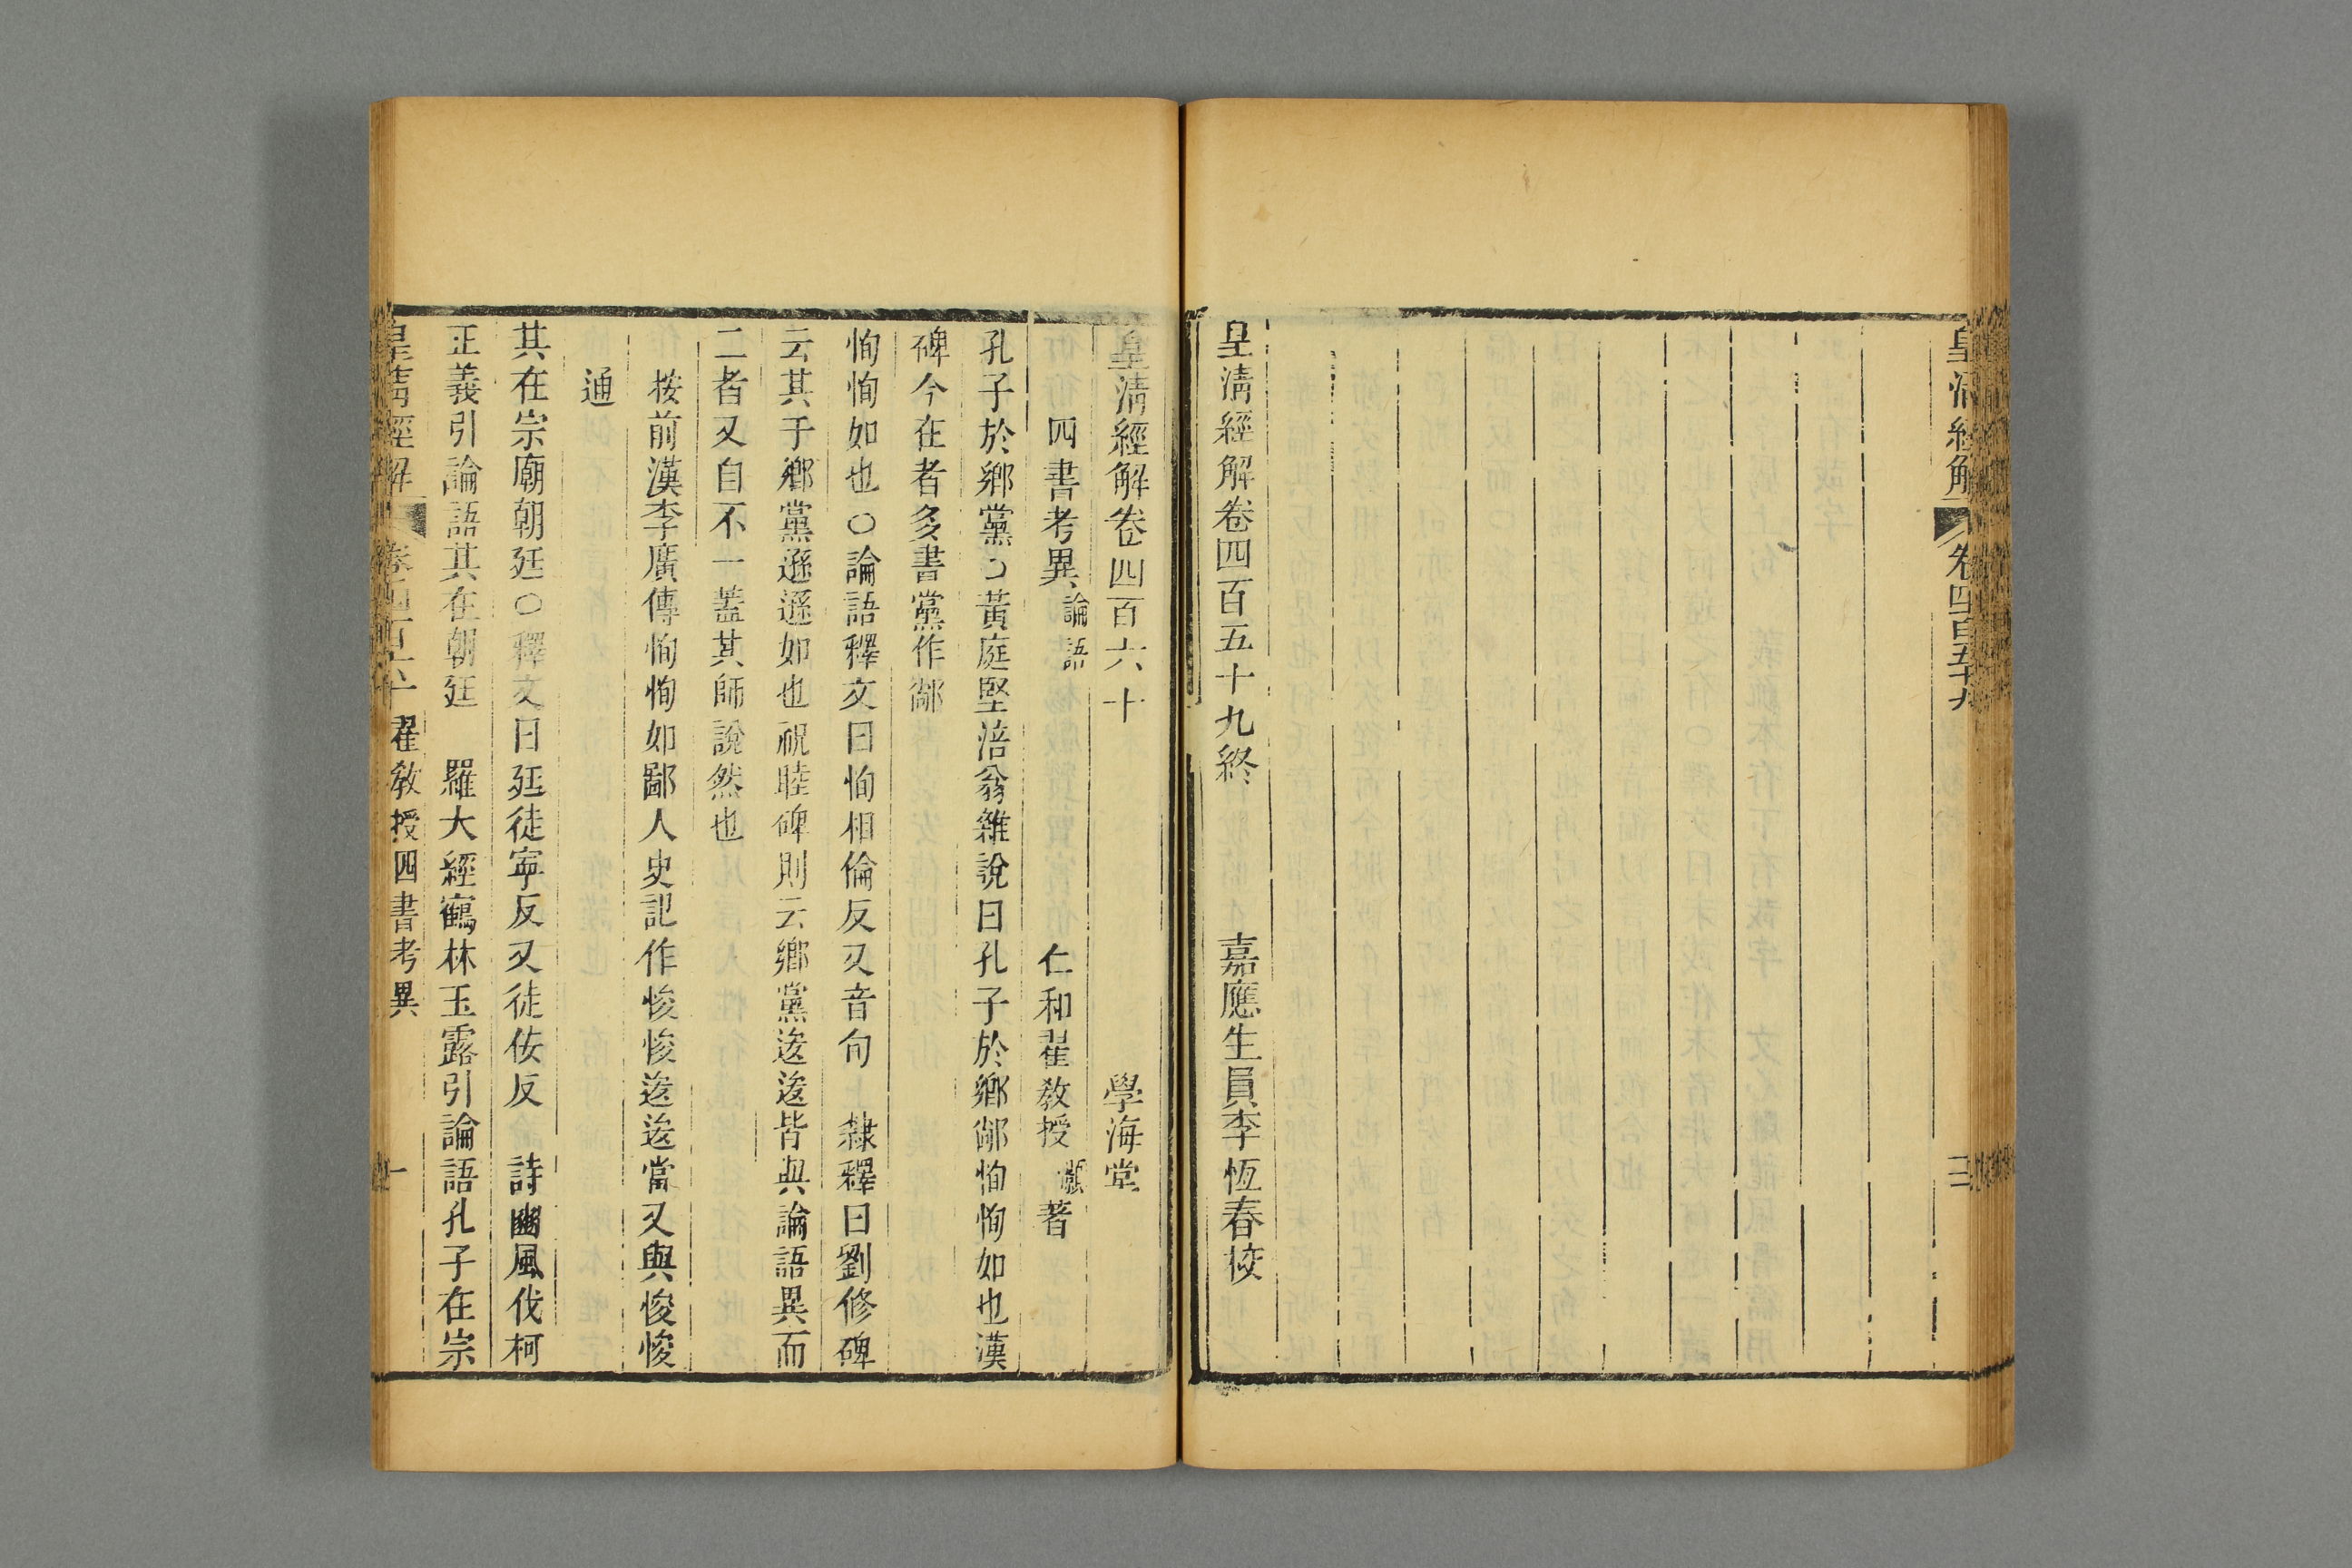 皇清經解 卷四百五十九 三
皇清經解卷四百五十九終 嘉應生員李恆春校
皇清經解卷四百六十 學海堂
四書考異 論語 仁和翟教授灝著
孔子於鄉黨○黃庭堅涪翁雜說曰孔子於鄉鄗恂恂如也漢
碑今在者多書黨作鄗
恂恂如也○論語釋文曰恂相倫反又音旬 隸釋曰劉修碑
云其于鄉黨遜遜如也祝睦碑則云鄉黨逡逡皆與論語異而
二者又自不一蓋其師說然也
按前漢李廣傳恂恂如鄙人史記作悛悛逡逡當又與悛悛
通
其在宗廟朝廷○釋文曰廷徒寧反又徒佞反 詩豳風伐柯
正義引論語其在朝廷 羅大經鶴林玉露引論語孔子在宗
皇清經解 卷四百六十 翟教授四書考異 一